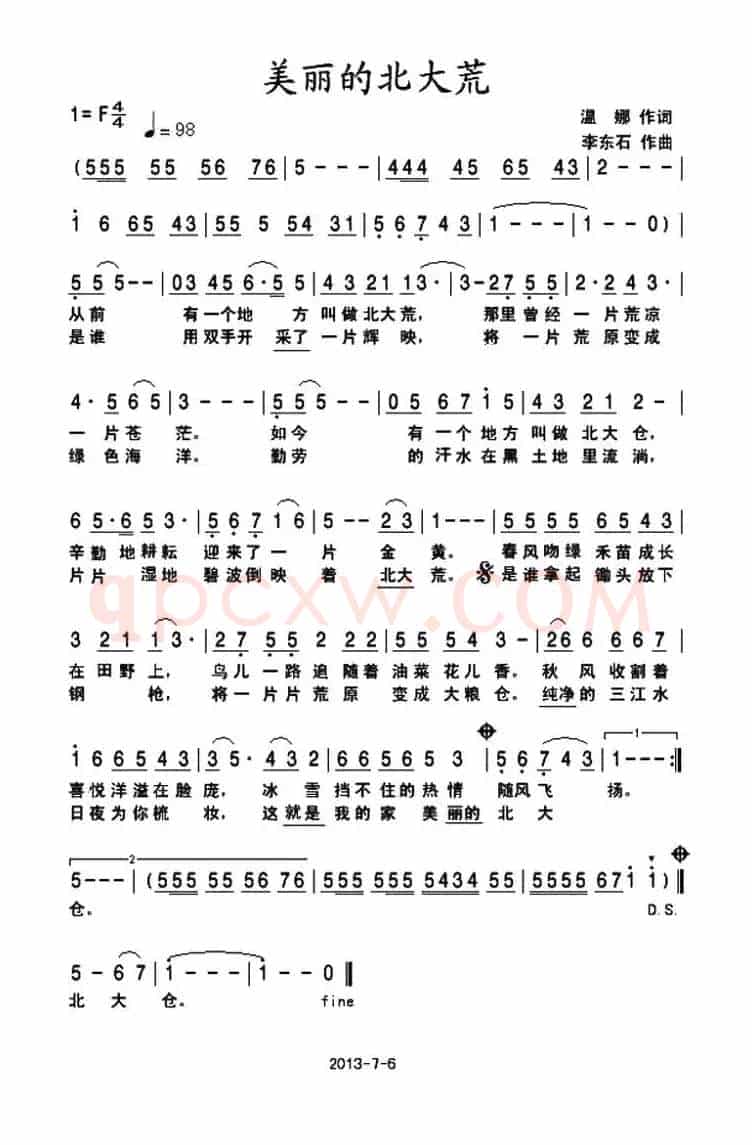 美丽的北大荒
1= F 4/4 ♩= 98
温 娜 作词
李东石 作曲
(555 55 56 76 | 5 - - - | 444 45 65 43 | 2 - - - |
i 6 65 43 | 55 5 54 31 | 5 6 7 43 | 1 - - - | 1 - - 0) |
5 5 5 - - | 03 45 6·5 5 | 4 3 21 1 3· | 3 - 27 5 5 | 2·2 4 3· |
从前 有一个地 方 叫做北大荒, 那里曾经 一片荒凉
是谁 用双手开 采了一片辉映, 将一片荒原变成
4· 5 6 5 | 3 - - - | 5 5 5 - - | 05 67 i 5 | 43 21 2 - |
一片苍 茫。 如今 有一个地方叫做北大仓,
绿色海 洋。 勤劳 的汗水在黑土地里流淌,
6 5·6 5 3· | 5 6 7 1 6 | 5 - - 2 3 | 1 - - - | 5 5 5 5 6 5 4 3 |
辛勤地耕耘 迎来了一片 金黄。 春风吻绿禾苗成长
片片湿地 碧波倒映着 北大荒。 是谁拿起锄头放下
3 21 1 3· | 2 7 5 5 2 22 | 5 6 5 4 3 2 | 2 6 6 6 6 7 |
在田野上, 鸟儿一路追随着油菜花儿香。秋风收割着
钢 枪, 将一片片荒原 变成大粮仓。纯净的三江水
i 6 6 5 4 3 | 3 5· 4 3 2 | 6 6 5 6 5 3 | 5 6 7 4 3 | 1 - - - :‖
喜悦洋溢在脸庞, 冰 雪挡不住的热情 随风飞 扬。
日夜为你梳 妆, 这就是我的家美丽的北大
5 - - - | (555 55 56 76 | 555 5434 55 5 | 5555 67 i i) ‖
仓。 D.S.
5 - 6 7 | i - - - | i - - 0 ‖
北大仓。 fine
2013-7-6
qpcxw.COM